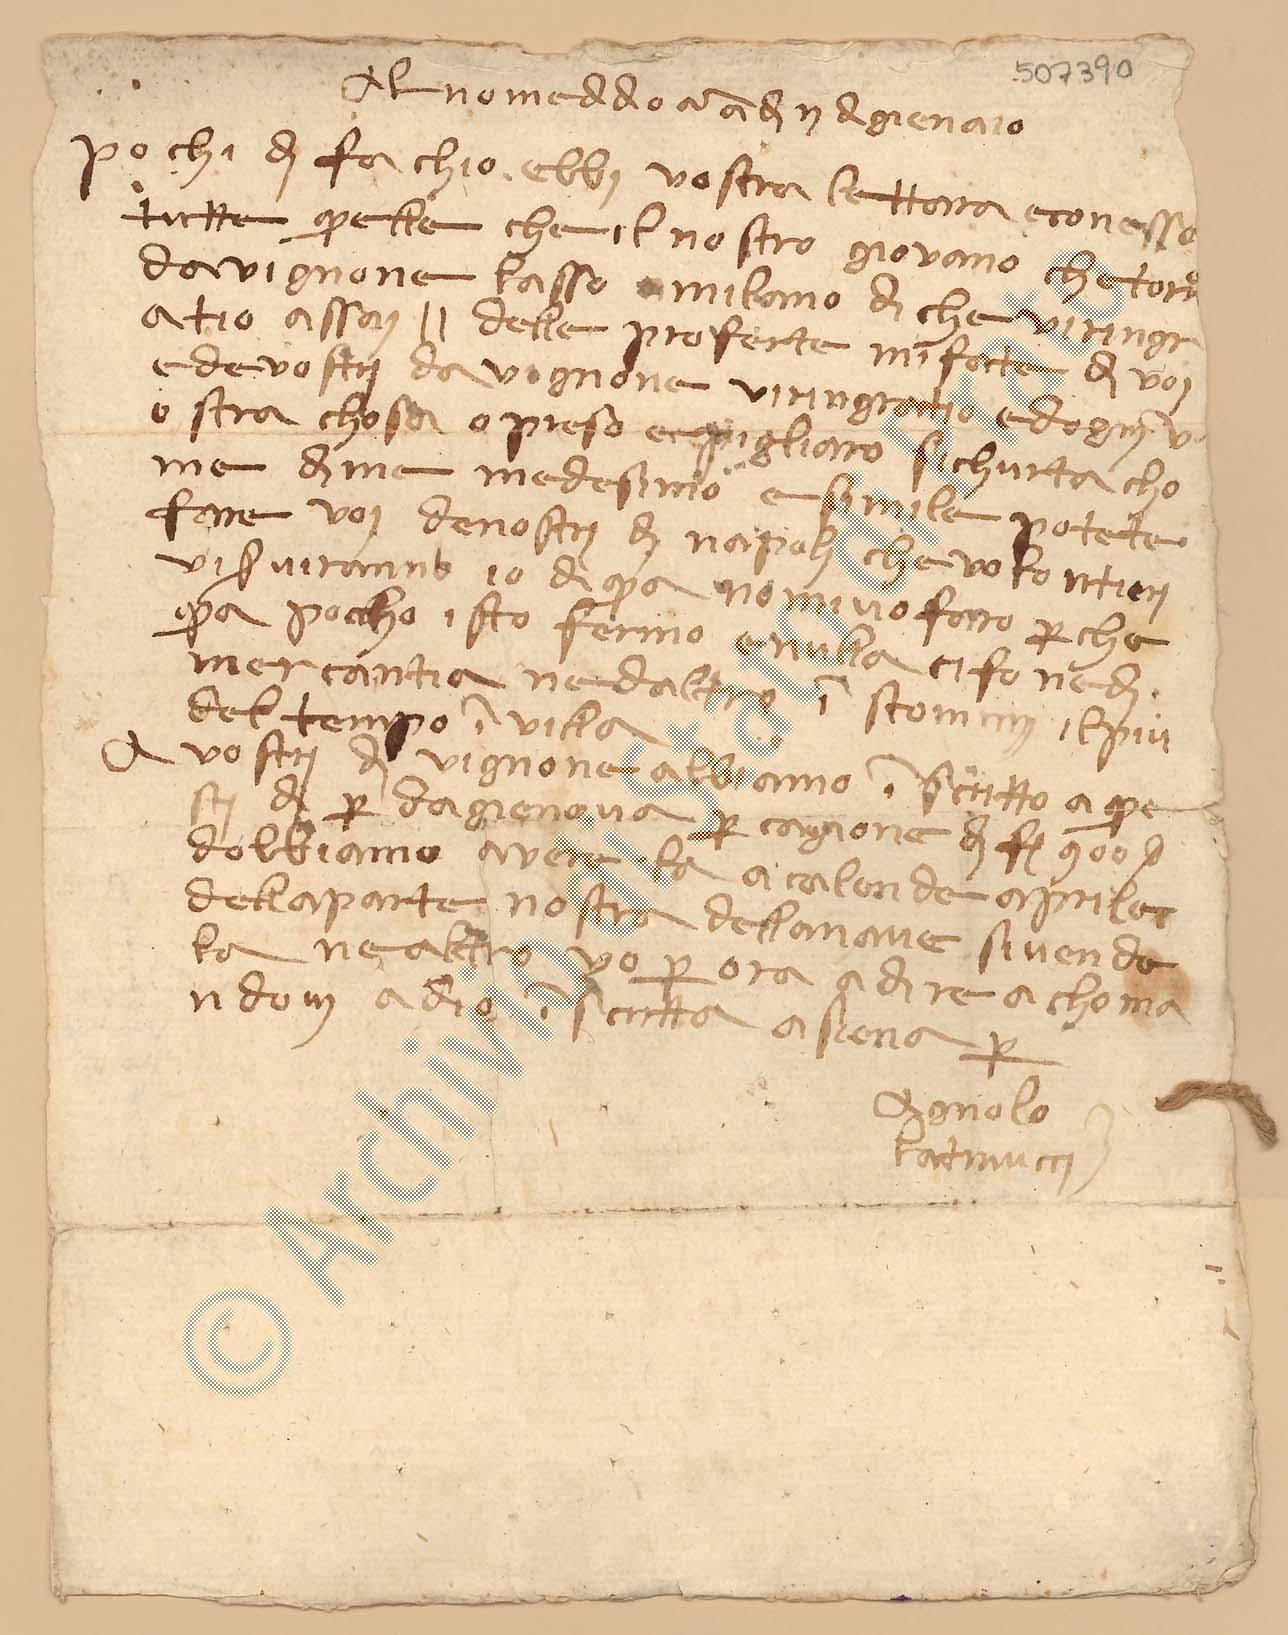 507390
Al nome d ddo am adj ij d gienaio
pochi dj fa chio ebbj vostra lettara e con esso
tutte quelle che il nostro giovano che torno
da vignone lasso a milano di che vi ringr
atio assaj // delle proferte mi facte dj voj
e de vostrj da vignone viringratio e dognj v
ostra chosa o preso e pigliaro sichurta cho
me dj me medesimo e simile potete
fare voj de nostrj dj napolj che volontierj
viserviranno io dj qua no mi vo faro p che
qua poccho isto fermo e nulla ci fo ne dj
mercantia ne daltro i stomj il piu
del tempo i villa
A vostrj dj vignone abbiamo i scritto a que
stj dj p da gienova p cagione dj fj 900
dobbiamo avere la a calende aprile
della parte nostra della nave si vende
la ne altro vo p ora a dire a choma
ndovj a dio i scritta a siena p
Agnolo